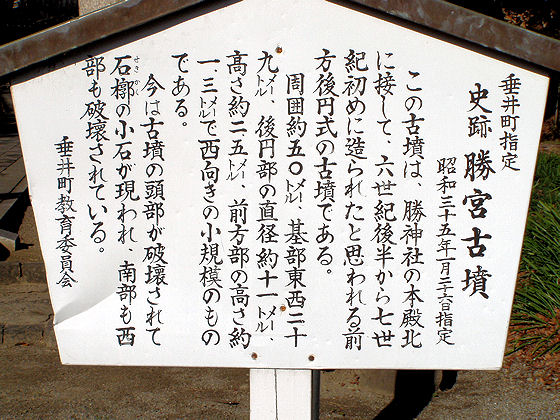 垂井町指定
史跡 勝宮古墳
昭和三十五年一月二六日指定
この古墳は、勝神社の本殿北
に接して、六世紀後半から七世
紀初めに造られたと思われる前
方後円式の古墳である。
周囲約五〇メートル、基部東西二十
九メートル、後円部の直径約十一メートル、
高さ約二.五メートル、前方部の高さ約
一.三メートルで西向きの小規模のもの
である。
今は古墳の頭部が破壊されて
石槨の小石が現われ、南部も西
部も破壊されている。
垂井町教育委員会